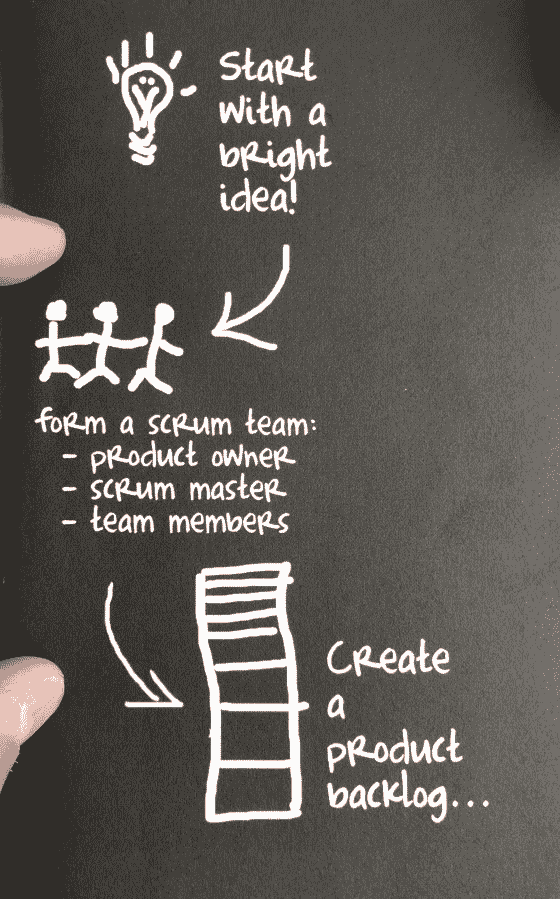 Start
with a
bright
idea!
form a scrum team:
- product owner
- scrum master
- team members
Create
a
product
backlog...